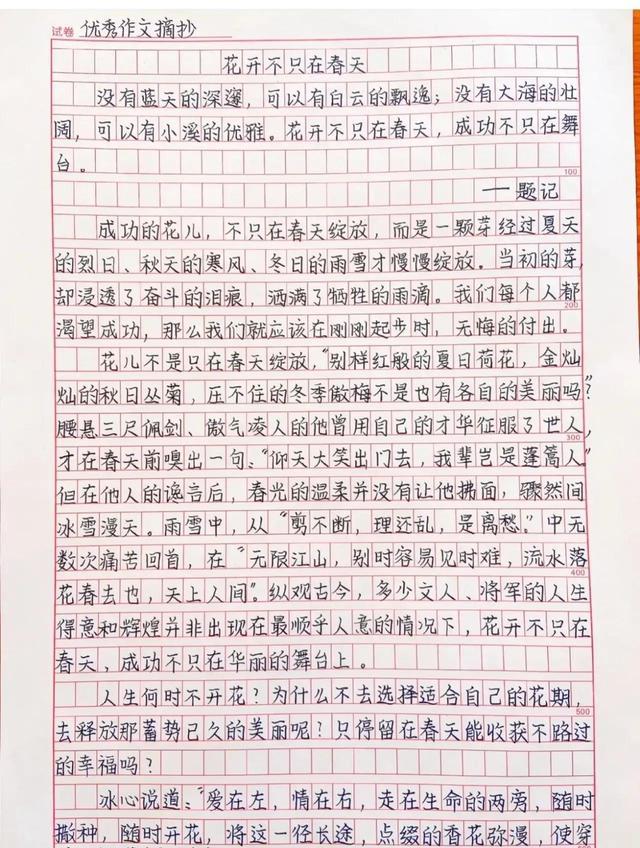 试卷 优秀作文摘抄
花开不只在春天
没有蓝天的深邃，可以有白云的飘逸；没有大海的壮
阔，可以有小溪的优雅。花开不只在春天，成功不只在舞
台。
100
——题记
成功的花儿，不只在春天绽放，而是一颗芽经过夏天
的烈日、秋天的寒风、冬日的雨雪才慢慢绽放。当初的芽，
却浸透了奋斗的泪痕，洒满了牺牲的雨滴。我们每个人都
200
渴望成功，那么我们就应该在刚刚起步时，无悔的付出。
花儿不是只在春天绽放，“别样红般的夏日荷花，金灿
灿的秋日丛菊，压不住的冬季傲梅不是也有各自的美丽吗？
腰悬三尺佩剑、傲气凌人的他曾用自己的才华征服了世人，
300
才在春天前嗅出一句：“仰天大笑出门去，我辈岂是蓬篙人”
但在他人的谗言后，春光的温柔并没有让他拂面，骤然间
冰雪漫天。雨雪中，从“剪不断，理还乱，是离愁。”中无
数次痛苦回首，在“无限江山，别时容易见时难，流水落
400
花春去也，天上人间”。纵观古今，多少文人、将军的人生
得意和辉煌并非出现在最顺乎人意的情况下，花开不只在
春天、成功不只在华丽的舞台上。
人生何时不开花？为什么不去选择适合自己的花期，
500
去释放那蓄势已久的美丽呢？只停留在春天能收获不路过
的幸福吗？
冰心说道：“爱在左，情在右，走在生命的两旁，随时
撒种，随时开花，将这一径长途，点缀的香花弥漫，使穿